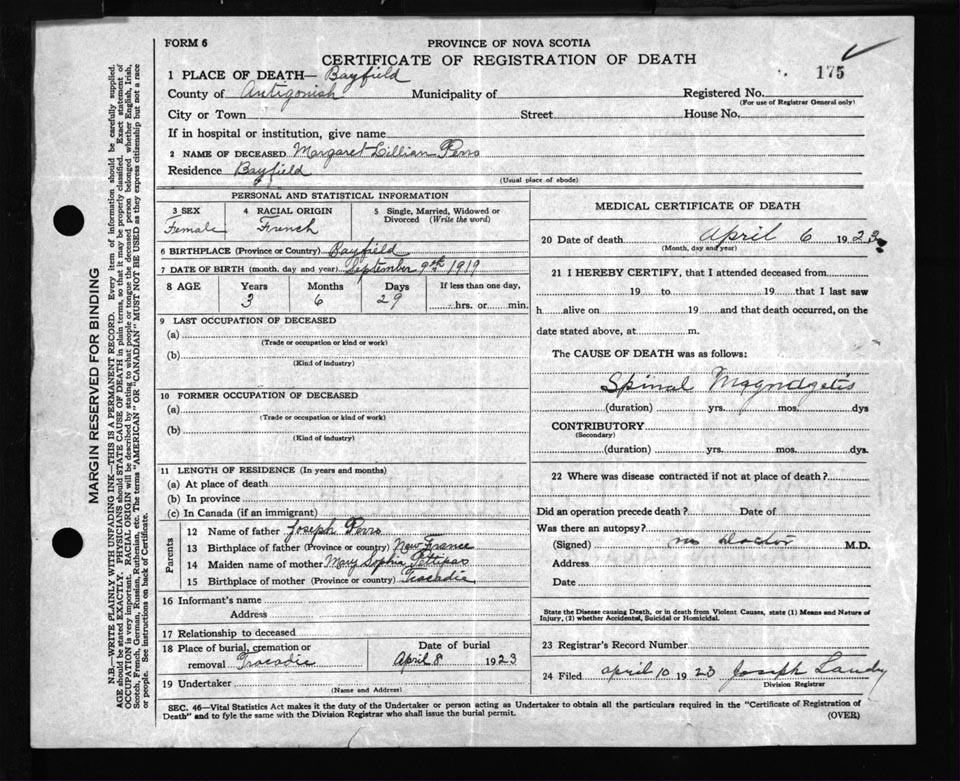 FORM 6
PROVINCE OF NOVA SCOTIA
CERTIFICATE OF REGISTRATION OF DEATH
175
1 PLACE OF DEATH— Bayfield
County of Antigonish Municipality of Registered No.
(For use of Registrar General only)
City or Town Street House No.
If in hospital or institution, give name
2 NAME OF DECEASED Margaret Lillian Perro
Residence Bayfield
(Usual place of abode)
PERSONAL AND STATISTICAL INFORMATION
3 SEX 4 RACIAL ORIGIN 5 Single, Married, Widowed or
Divorced (Write the word)
Female French
6 BIRTHPLACE (Province or Country) Bayfield
7 DATE OF BIRTH (month, day and year) September 9th 1919
8 AGE Years Months Days If less than one day,
3 6 29 hrs. or min.
9 LAST OCCUPATION OF DECEASED
(a)
(Trade or occupation or kind or work)
(b)
(Kind of industry)
10 FORMER OCCUPATION OF DECEASED
(a)
(Trade or occupation or kind of work)
(b)
(Kind of industry)
11 LENGTH OF RESIDENCE (In years and months)
(a) At place of death
(b) In province
(c) In Canada (if an immigrant)
Parents
12 Name of father Joseph Perro
13 Birthplace of father (Province or country) New France
14 Maiden name of mother Mary Sophia Pettipas
15 Birthplace of mother (Province or country) Tracadie
16 Informant's name
Address
17 Relationship to deceased
18 Place of burial, cremation or Date of burial
removal Tracadie April 8 1923
19 Undertaker
(Name and Address)
MEDICAL CERTIFICATE OF DEATH
20 Date of death April 6 1923
(Month, day and year)
21 I HEREBY CERTIFY, that I attended deceased from
19 to 19 that I last saw
h alive on 19 and that death occurred, on the
date stated above, at m.
The CAUSE OF DEATH was as follows:
Spinal
(duration) yrs. mos. dys
CONTRIBUTORY
(Secondary)
(duration) yrs. mos. dys.
22 Where was disease contracted if not at place of death?
Did an operation precede death? Date of
Was there an autopsy?
(Signed) no Doctor M.D.
Address
Date
State the Disease causing Death, or in death from Violent Causes, state (1) Means and Nature of
Injury, (2) whether Accidental, Suicidal or Homicidal.
23 Registrar's Record Number
24 Filed april 10 1923 Joseph Landry
Division Registrar
SEC. 46—Vital Statistics Act makes it the duty of the Undertaker or person acting as Undertaker to obtain all the particulars required in the "Certificate of Registration of
Death" and to fyle the same with the Division Registrar who shall issue the burial permit.
(OVER)
MARGIN RESERVED FOR BINDING
N.B.—WRITE PLAINLY WITH UNFADING INK—THIS IS A PERMANENT RECORD. Every item of information should be carefully supplied.
AGE should be stated EXACTLY. PHYSICIANS should STATE CAUSE OF DEATH in plain terms, so that it may be properly classified. Exact statement of
OCCUPATION is very important. RACIAL ORIGIN will be described by stating to what people or tongue the deceased person belonged whether English, Irish,
Scotch, French, German, Russian, Ruthenian, etc. The terms "AMERICAN" OR "CANADIAN" MUST NOT BE USED as they express citizenship but not a race
or people. See instructions on back of Certificate.